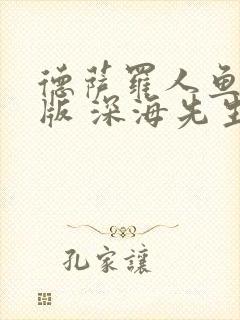 德萨罗人鱼
版 深海先生
孔家讓